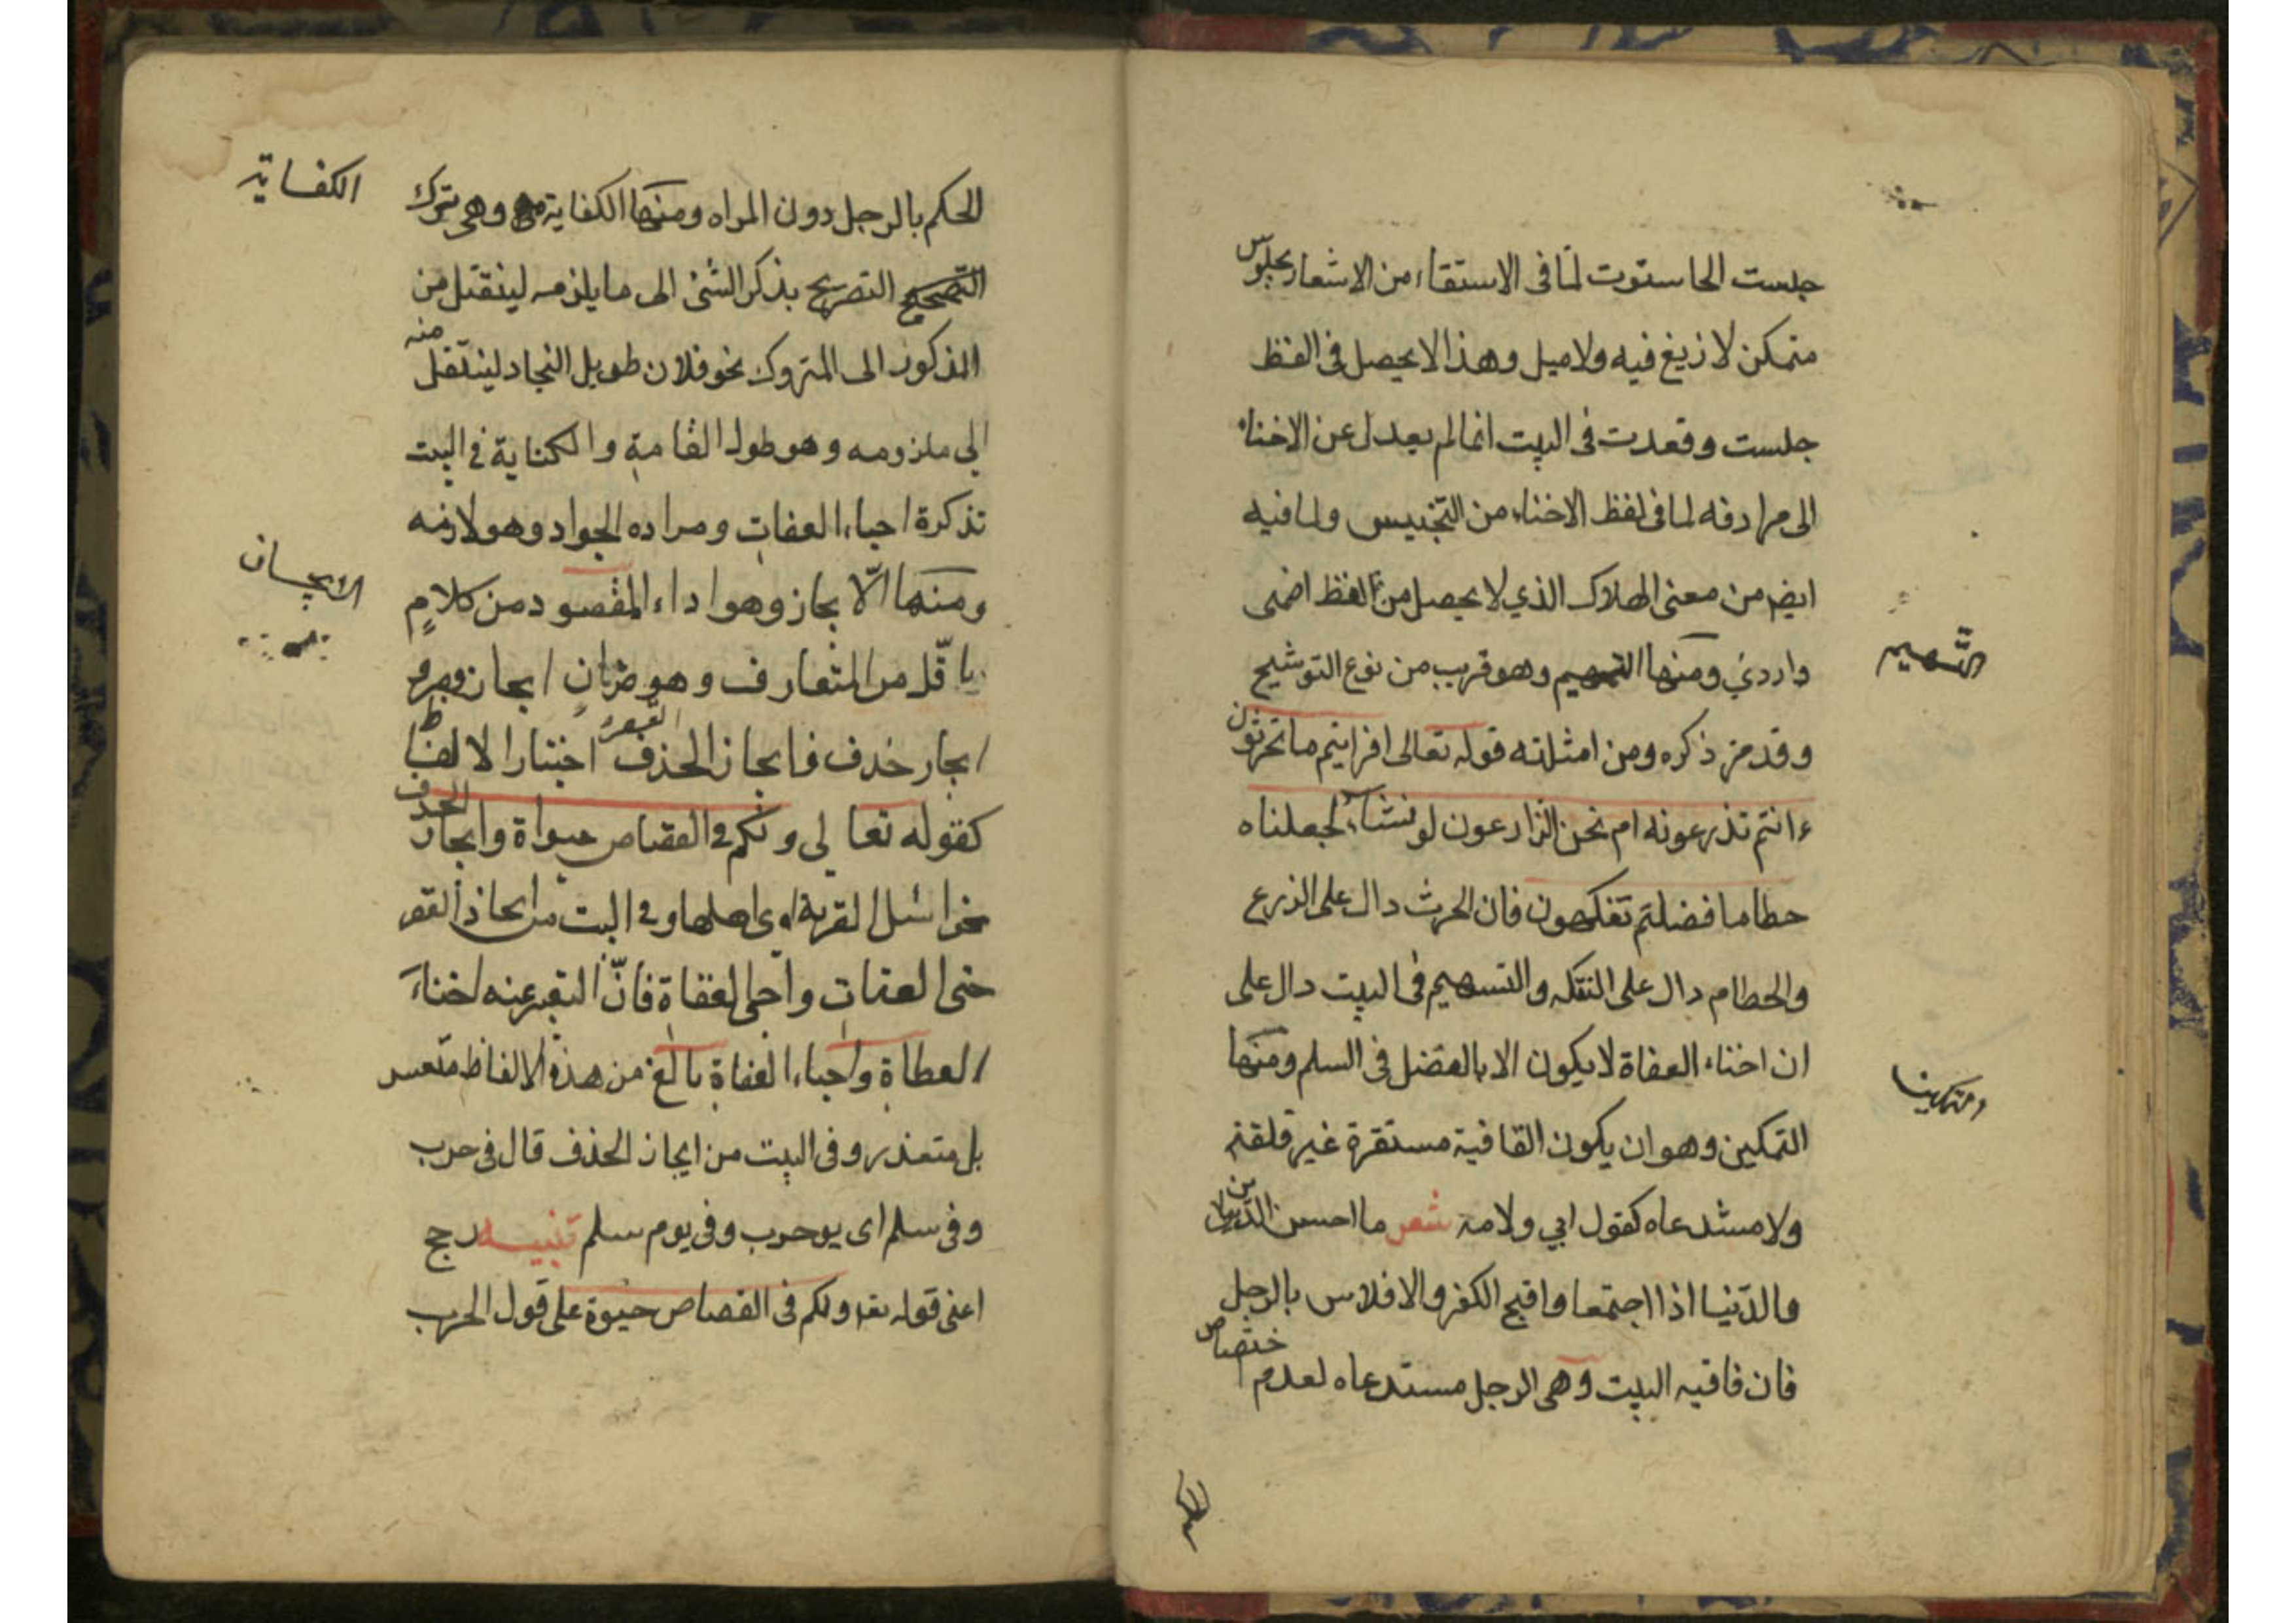 جلست الحاستوت لما فى الاستقاء من الاشعار بجلوس
متمكن لا زيغ فيه ولا ميل وهذا لا يحصل فى لفظ
جلست وقعدت فى البيت انما لم يعدل عن الاخناء
الى مرادفه لما فى لفظ الاخناء من التجنيس ولما فيه
ايضم من معنى الهلاك الذي لا يحصل من لفظ اضمى
واردي ومنها التسهيم وهو قريب من نوع التوشيح
التسهيم
وقد مرّ ذكره ومن امثلته قوله تعالى افرايتم ما تحرثون
ءانتم تذرعونه ام نحن الزارعون لو نشاء لجعلناه
حطاما فضلتم تفكهون فان الحرث دال على الزرع
والحطام دال على التفكه والتسهيم فى البيت دال على
ان اخناء العفاة لا يكون الا بالفضل فى السلم ومنها
التمكين وهو ان يكون القافية مستقرة غير قلقة
ولا مستدعاه كقول ابي ولامة شعر ما احسن الدين
والدّنيا اذا اجتمعا واقبح الكفر والافلاس بالرجل
فان قافيه البيت وهى الرجل مستدعاه لعدم اختصاص
الحكم بالرجل دون المراه ومنها الكفاية وهى ترك
الكفاية
التصريح بذكر الشئ الى ما يلزمه لينقتل من
المذكور الى المتروك نحو فلان طويل النجاد لينتقل منه
الى ملزومه وهو طول القامة والكناية فى البيت
تذكرة احباء العفات ومراده الجواد وهو لازمه
ومنها الّايجاز وهو اداء المقصود من كلام
باقّل من المتعارف وهو ضربان ايجاز قصر و
ايجاز حذف فايجاز الحذف القصر اختبار الالفاظ
كقوله تعالى ولكم فى القصاص حيواة وايجاز الحذف
نحو اسئل القربة اى اهلها وفى البيت من ايجاز القصر
حنى العفات واحمى العفاة فانّ التعبير عنه اخناء
العطاة واحباء العفاة بالغ من هذه الالفاظ متعسر
بل متعذر وفى البيت من ايجاز الحذف قال فى حرب
وفى سلم اى يو حرب وفى يوم سلم تنبيه رجح
اعنى قوله تعا ولكم فى القصاص حيوة على قول الحرب